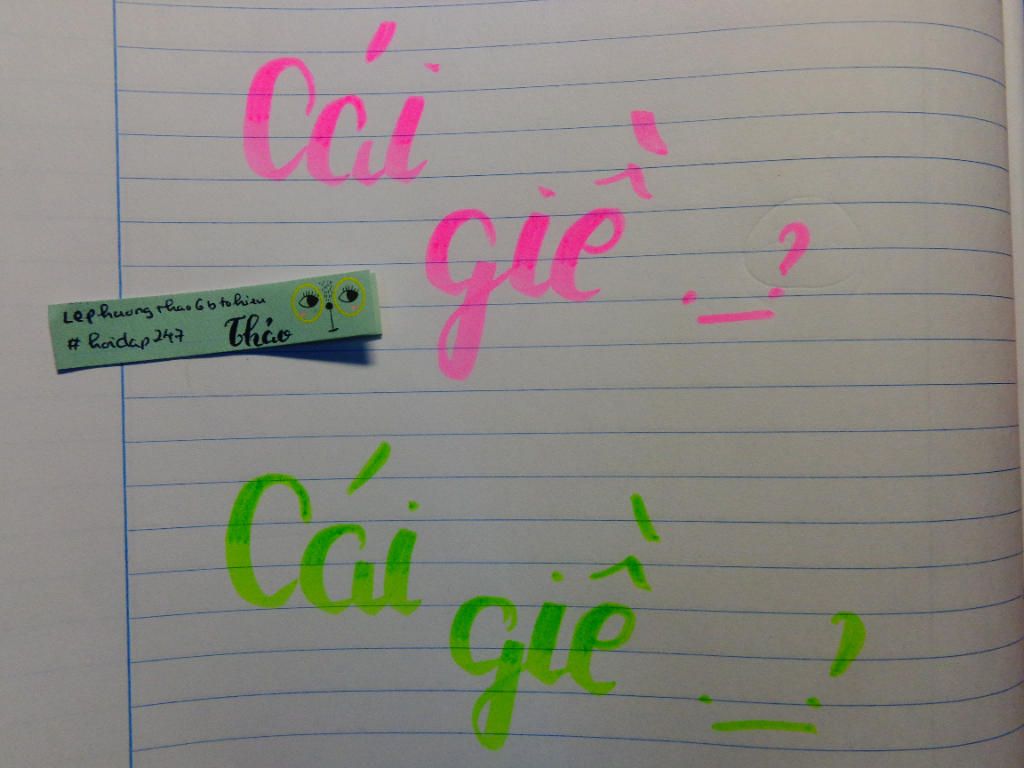 Cái
giề ._.?
Lephuongthao6btohieu
#hoidap247
Thảo
Cái
giề ._.?